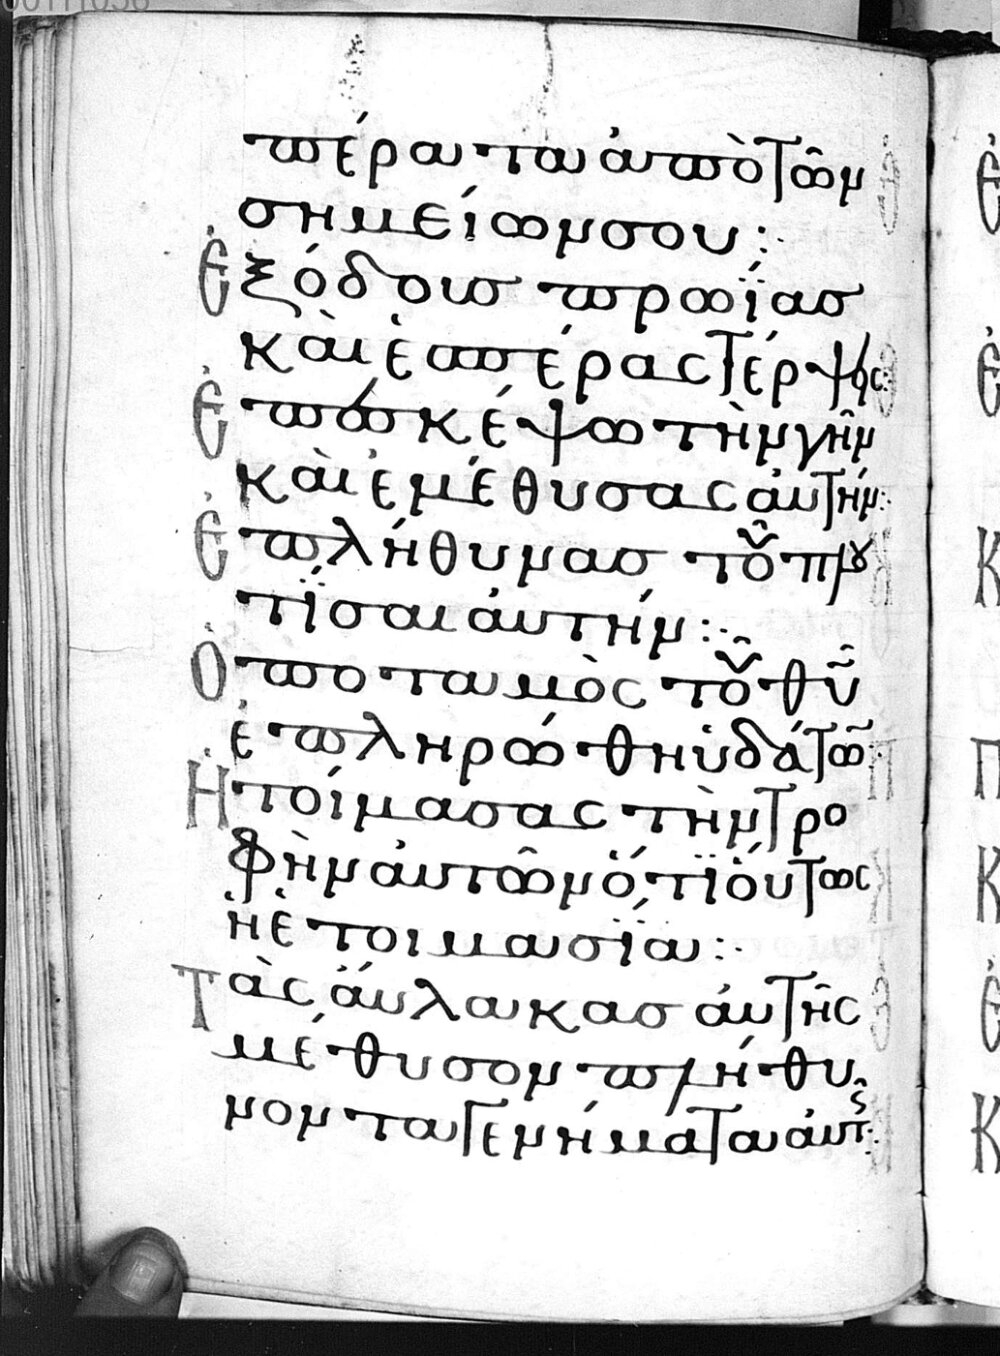 πέρατα ἀπὸ τῶν
σημείων σου :·
Ἐξόδους πρωΐας
καὶ ἑσπέρας τέρψης:
Ἐπεσκέψω τὴν γῆν
καὶ ἐμέθυσας αὐτήν:·
Ἐπλήθυνας τοῦ πλου
τίσαι αὐτήν :·
Ὁ ποταμὸς τοῦ θῦ
ἐπληρώθη ὑδάτων:
Ἡτοίμασας τὴν τρο
φὴν αὐτῶν ὅτι οὕτως
ἡ ἑτοιμασία :·
Τὰς αὔλακας αὐτῆς
μέθυσον πλήθυ
νον τα γενήματα αὐτῆς: